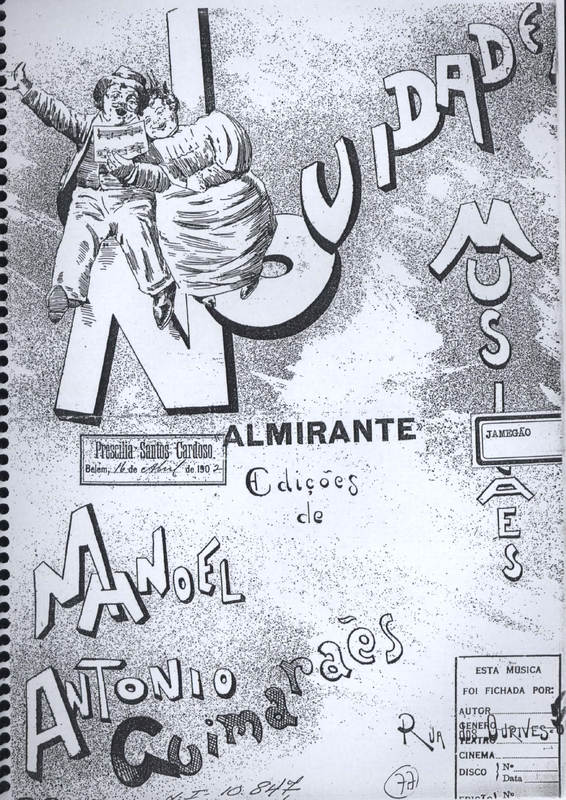 NOVIDADES
MUSICAES
JAMEGÃO
ALMIRANTE
Prescilia Santos Cardoso
Belem, 16 de Abril de 1902
Edições
de
MANOEL
ANTONIO
Guimarães
RUA DOS OURIVES
ESTA MÚSICA
FOI FICHADA POR:
AUTOR
GENERO
TEATRO
CINEMA
DISCO Nº
Data
Nº
77
N.I- 10.847